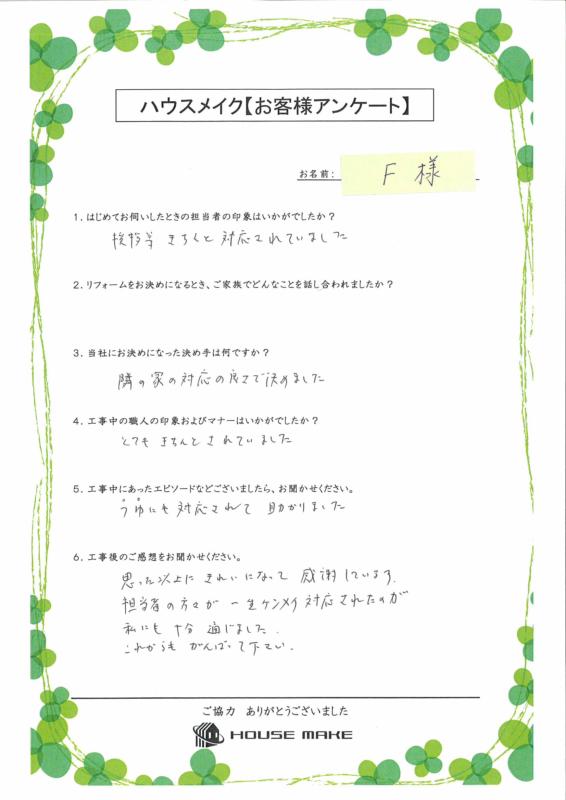 ハウスメイク【お客様アンケート】
お名前: F 様
1．はじめてお伺いしたときの担当者の印象はいかがでしたか？
挨拶等 きちんと対応されていました
2．リフォームをお決めになるとき、ご家族でどんなことを話し合われましたか？
3．当社にお決めになった決め手は何ですか？
隣の家の対応の良さで決めました
4．工事中の職人の印象およびマナーはいかがでしたか？
とても きちんと されていました
5．工事中にあったエピソードなどございましたら、お聞かせください。
にも対応されて 助かりました
6．工事後のご感想をお聞かせください。
思った以上に きれいになって 感謝しています。
担当者の方々が 一生ケンメイ対応されたのが
私にも 十分 通じました。
これからも がんばって下さい。
ご協力 ありがとうございました
HOUSE MAKE